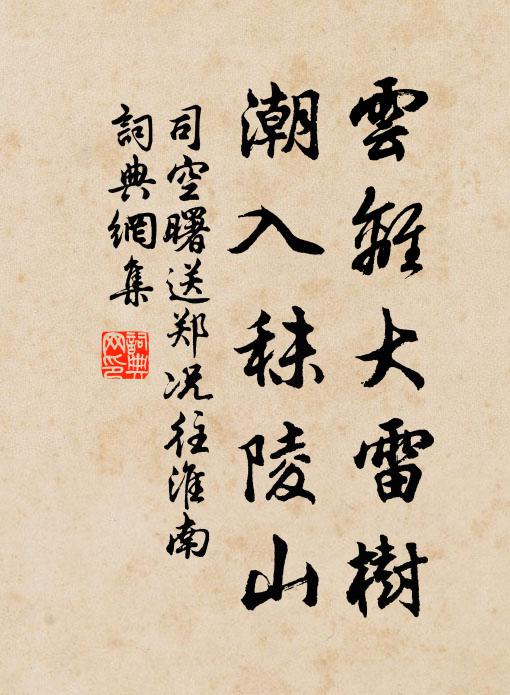 雲離大雷樹
潮入秣陵山
司空曙送郑况往淮南
詞典網集
詞典網印